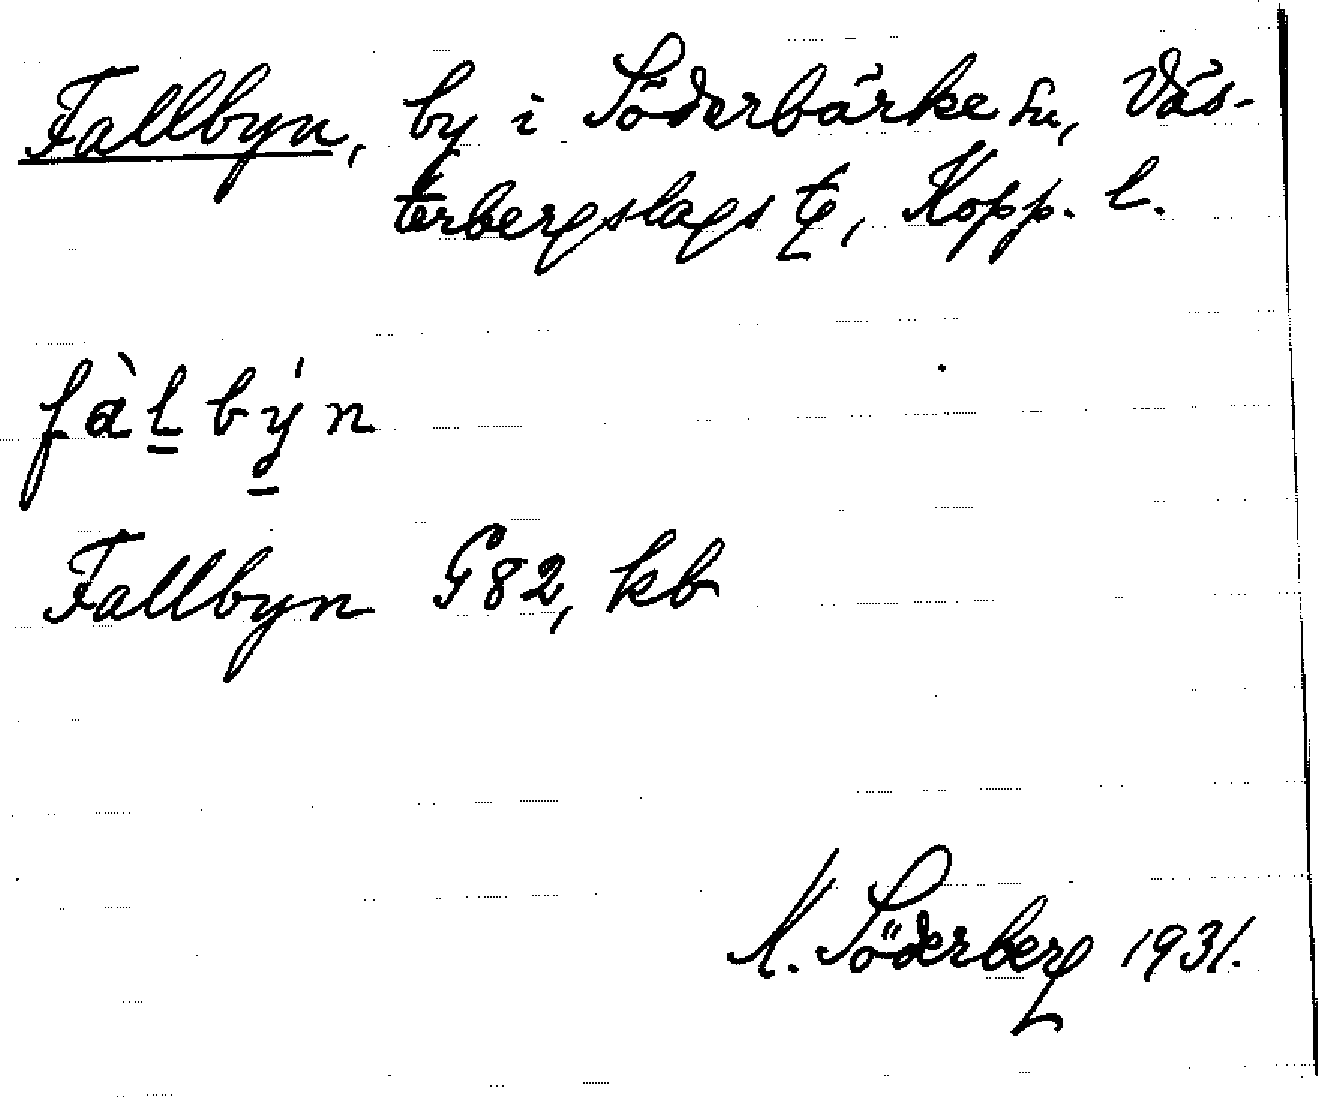 Fallbyn, by i Söderbärke sn, Väs-
terbergslags tg, Kopp. l.
fàl̲bý̲n
Fallbyn G82, kb
Söderberg 1931.